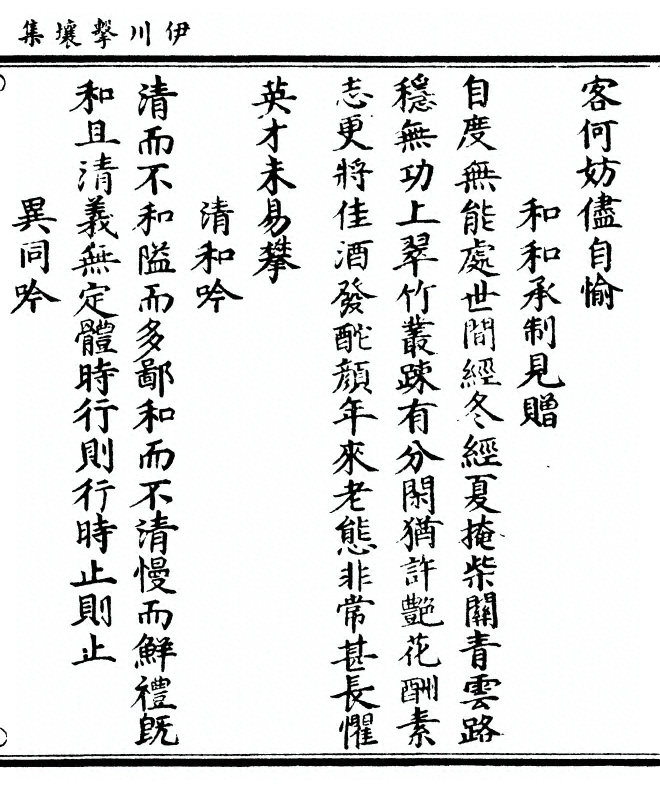 伊川擊壤集
客何妨儘自愉
和和承制見贈
自度無能處世間經冬經夏掩柴關青雲路
穩無功上翠竹叢踈有分閑猶許艶花酬素
志更將佳酒發酡顔年來老態非常甚長懼
英才未易攀
清和吟
清而不和隘而多鄙和而不清慢而鮮禮旣
和且清義無定體時行則行時止則止
異同吟